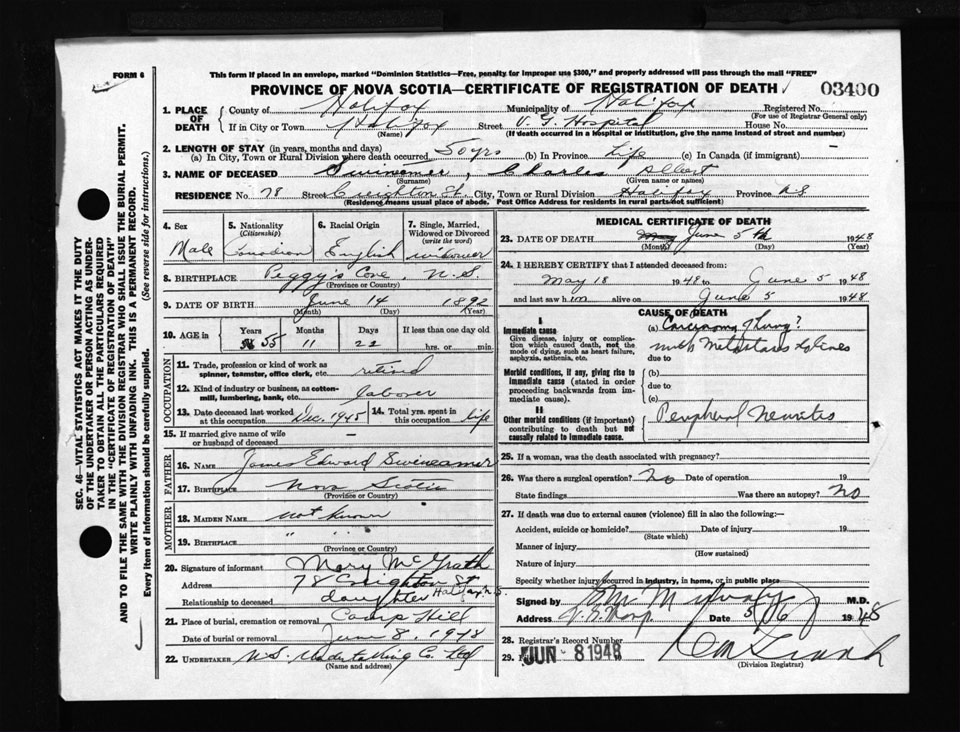 FORM 6
This form if placed in an envelope, marked "Dominion Statistics—Free, penalty for improper use $300," and properly addressed will pass through the mail "FREE"
PROVINCE OF NOVA SCOTIA—CERTIFICATE OF REGISTRATION OF DEATH
03400
1. PLACE OF DEATH
County of Halifax Municipality of Halifax Registered No.
(For use of Registrar General only)
If in City or Town Halifax Street V. G. Hospital House No.
(Name) (If death occurred in a hospital or institution, give the name instead of street and number)
2. LENGTH OF STAY (in years, months and days)
(a) In City, Town or Rural Division where death occurred 50 yrs (b) In Province Life (c) In Canada (if immigrant)
3. NAME OF DECEASED Swineamer, Charles Albert
(Surname) (Given name or names)
RESIDENCE No. 78 Street Creighton St. City, Town or Rural Division Halifax Province N.S
(Residence means usual place of abode. Post Office Address for residents in rural parts not sufficient)
4. Sex Male
5. Nationality (Citizenship) Canadian
6. Racial Origin English
7. Single, Married, Widowed or Divorced (write the word) widower
8. BIRTHPLACE Peggy's Cove, N.S.
(Province or Country)
9. DATE OF BIRTH June 14 1892
(Month) (Day) (Year)
10. AGE in Years Months Days If less than one day old
55 11 22 hrs. or min.
OCCUPATION
11. Trade, profession or kind of work as spinner, teamster, office clerk, etc. retired
12. Kind of industry or business, as cotton-mill, lumbering, bank, etc. labover
13. Date deceased last worked at this occupation Dec. 1945
14. Total yrs. spent in this occupation life
15. If married give name of wife or husband of deceased —
FATHER
16. NAME James Edward Swineamer
17. BIRTHPLACE Nova Scotia
(Province or Country)
MOTHER
18. MAIDEN NAME not known
19. BIRTHPLACE " "
(Province or Country)
20. Signature of informant Mary McGrath
Address 78 Creighton St Halifax N.S.
Relationship to deceased daughter
21. Place of burial, cremation or removal Camp Hill
Date of burial or removal June 8, 1948
22. UNDERTAKER N.S. Undertaking Co. Ltd
(Name and address)
MEDICAL CERTIFICATE OF DEATH
23. DATE OF DEATH May June 5th 1948
(Month) (Day) (Year)
24. I HEREBY CERTIFY that I attended deceased from:
May 18 1948 to June 5 1948
and last saw him alive on June 5 1948
CAUSE OF DEATH
I
Immediate cause
Give disease, injury or complication which caused death, not the mode of dying, such as heart failure, asphyxia, asthenia, etc.
(a) Carcinoma of lung?
with Metastases to
due to
Morbid conditions, if any, giving rise to immediate cause (stated in order proceeding backwards from immediate cause).
(b)
due to
(c)
II
Other morbid conditions (if important) contributing to death but not causally related to immediate cause.
Peripheral Neuritis
25. If a woman, was the death associated with pregnancy?
26. Was there a surgical operation? No Date of operation 19
State findings Was there an autopsy? No
27. If death was due to external causes (violence) fill in also the following:—
Accident, suicide or homicide? Date of injury 19
(State which)
Manner of injury
(How sustained)
Nature of injury
Specify whether injury occurred in industry, in home, or in public place
Signed by M.D.
Address Date 5/06/ 1948
28. Registrar's Record Number
29. JUN - 8 1948
(Division Registrar)
SEC. 46—VITAL STATISTICS ACT MAKES IT THE DUTY
OF THE UNDERTAKER OR PERSON ACTING AS UNDER-
TAKER TO OBTAIN ALL THE PARTICULARS REQUIRED
IN THE "CERTIFICATE OF REGISTRATION OF DEATH"
AND TO FILE THE SAME WITH THE DIVISION REGISTRAR WHO SHALL ISSUE THE BURIAL PERMIT.
WRITE PLAINLY WITH UNFADING INK. THIS IS A PERMANENT RECORD.
Every item of Information should be carefully supplied. (See reverse side for instructions.)